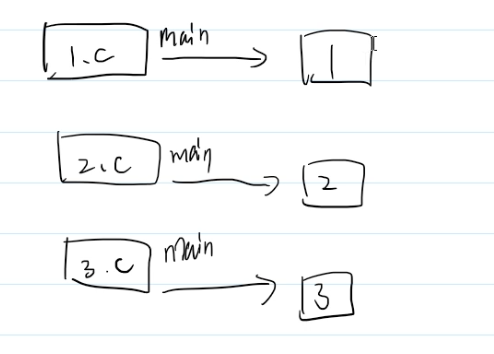 1.c main 1
2.c main 2
3.c main 3